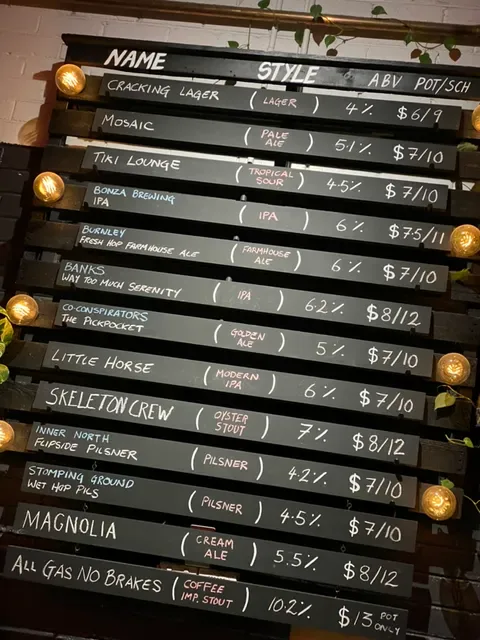 NAME STYLE ABV POT/SCH
CRACKING LAGER (LAGER) 4% $6/9
MOSAIC (PALE ALE) 5.1% $7/10
TIKI LOUNGE (TROPICAL SOUR) 4.5% $7/10
BONZA BREWING
IPA (IPA) 6% $7.5/11
BURNLEY
FRESH HOP FARMHOUSE ALE (FARMHOUSE ALE) 6% $7/10
BANKS
WAY TOO MUCH SERENITY (IPA) 6.2% $8/12
CO-CONSPIRATORS
THE PICKPOCKET (GOLDEN ALE) 5% $7/10
LITTLE HORSE (MODERN IPA) 6% $7/10
SKELETON CREW (OYSTER STOUT) 7% $8/12
INNER NORTH
FLIPSIDE PILSNER (PILSNER) 4.2% $7/10
STOMPING GROUND
WET HOP PILS (PILSNER) 4.5% $7/10
MAGNOLIA (CREAM ALE) 5.5% $8/12
ALL GAS NO BRAKES (COFFEE IMP. STOUT) 10.2% $13 POT ONLY